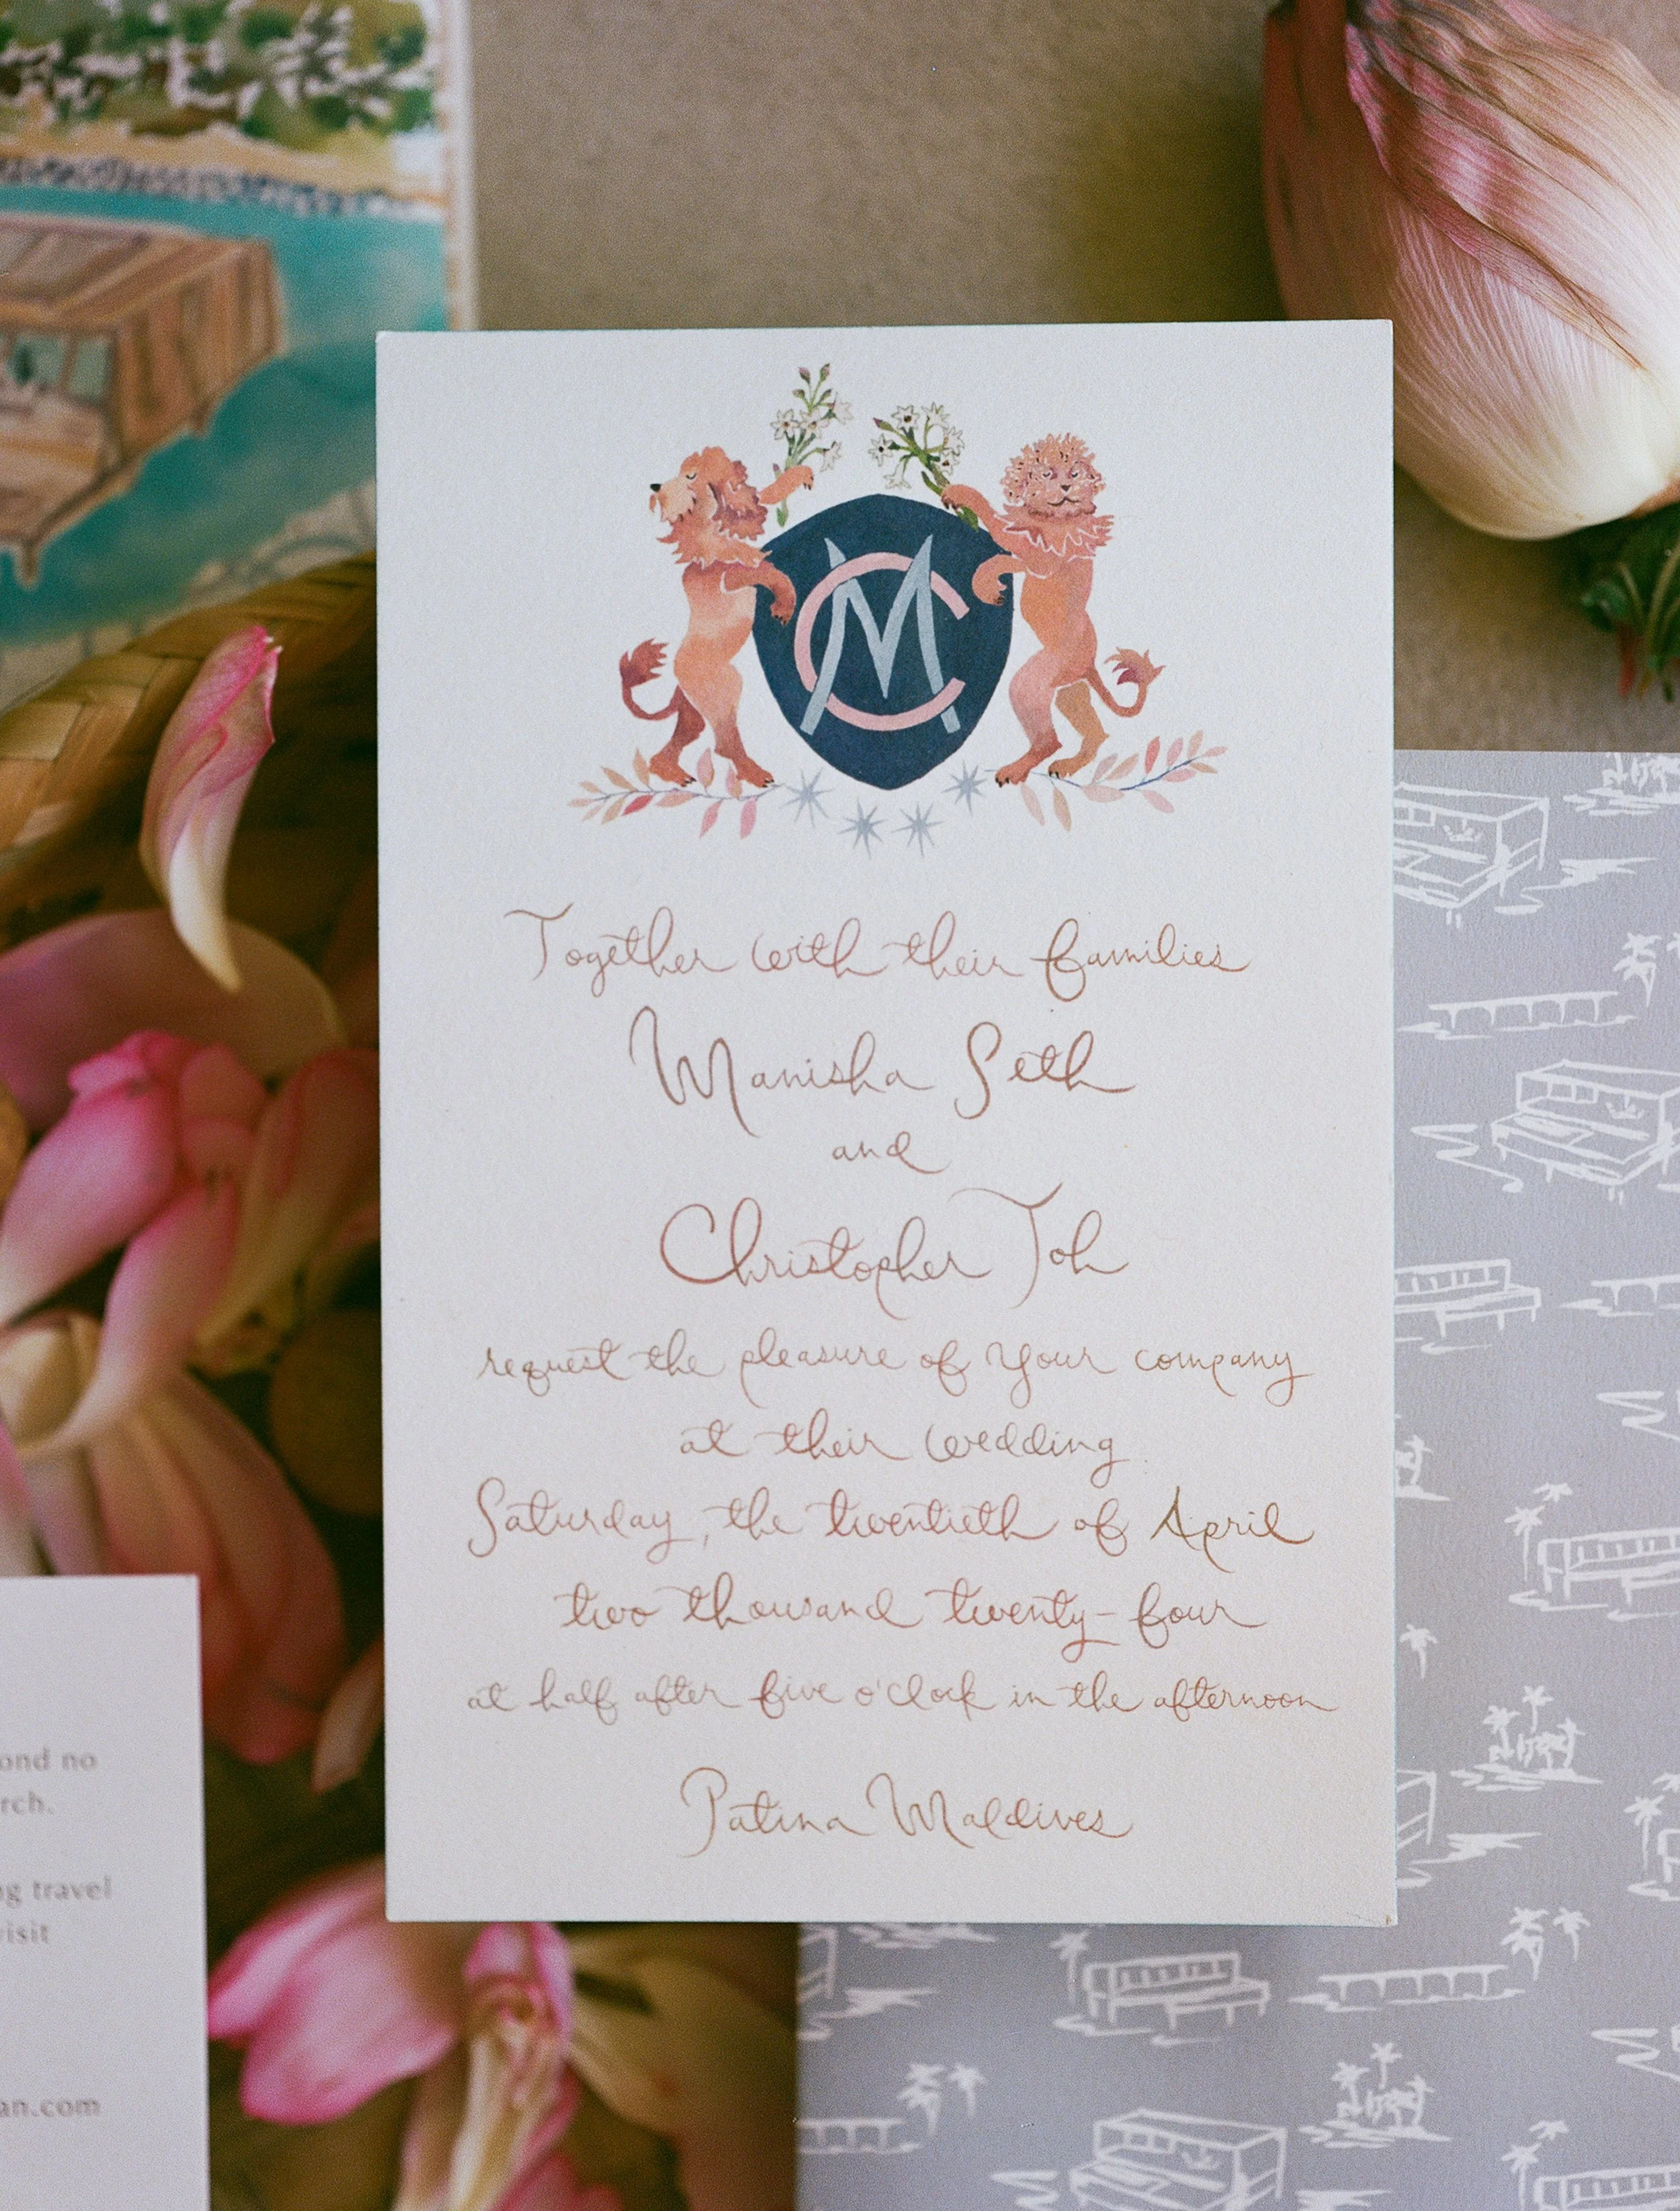 MC
Together with their families
Manisha Seth
and
Christopher Toh
request the pleasure of your company
at their wedding
Saturday, the twentieth of April
two thousand twenty-four
at half after five o'clock in the afternoon
Patina Maldives
no
travel
visit